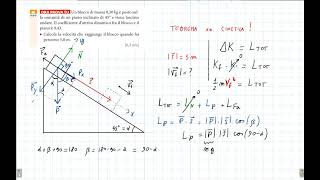 Un blocco di massa 0,50 kg è posto sul-
la sommità di un piano inclinato di 45° e viene lasciato
andare. Il coefficiente d'attrito dinamico fra il blocco e il
piano è 0,43.
Calcola la velocità che raggiunge il blocco quando ha
percorso 5,0 m.
TEOREMA EN CINETICA!
ΔK = L_TOT
|s⃗| = 5m
|v⃗_f| = ?
K_f - K_i = L_TOT
L_TOT = L_N + L_P + L_FA
L_P = P⃗ · s⃗ = |P⃗| |s⃗| cos(β)
L_P = |P⃗| |s⃗| cos(90-α)
mg
45° = α
α + β + 90 = 180 β = 180 - 90 - α = 90 - α